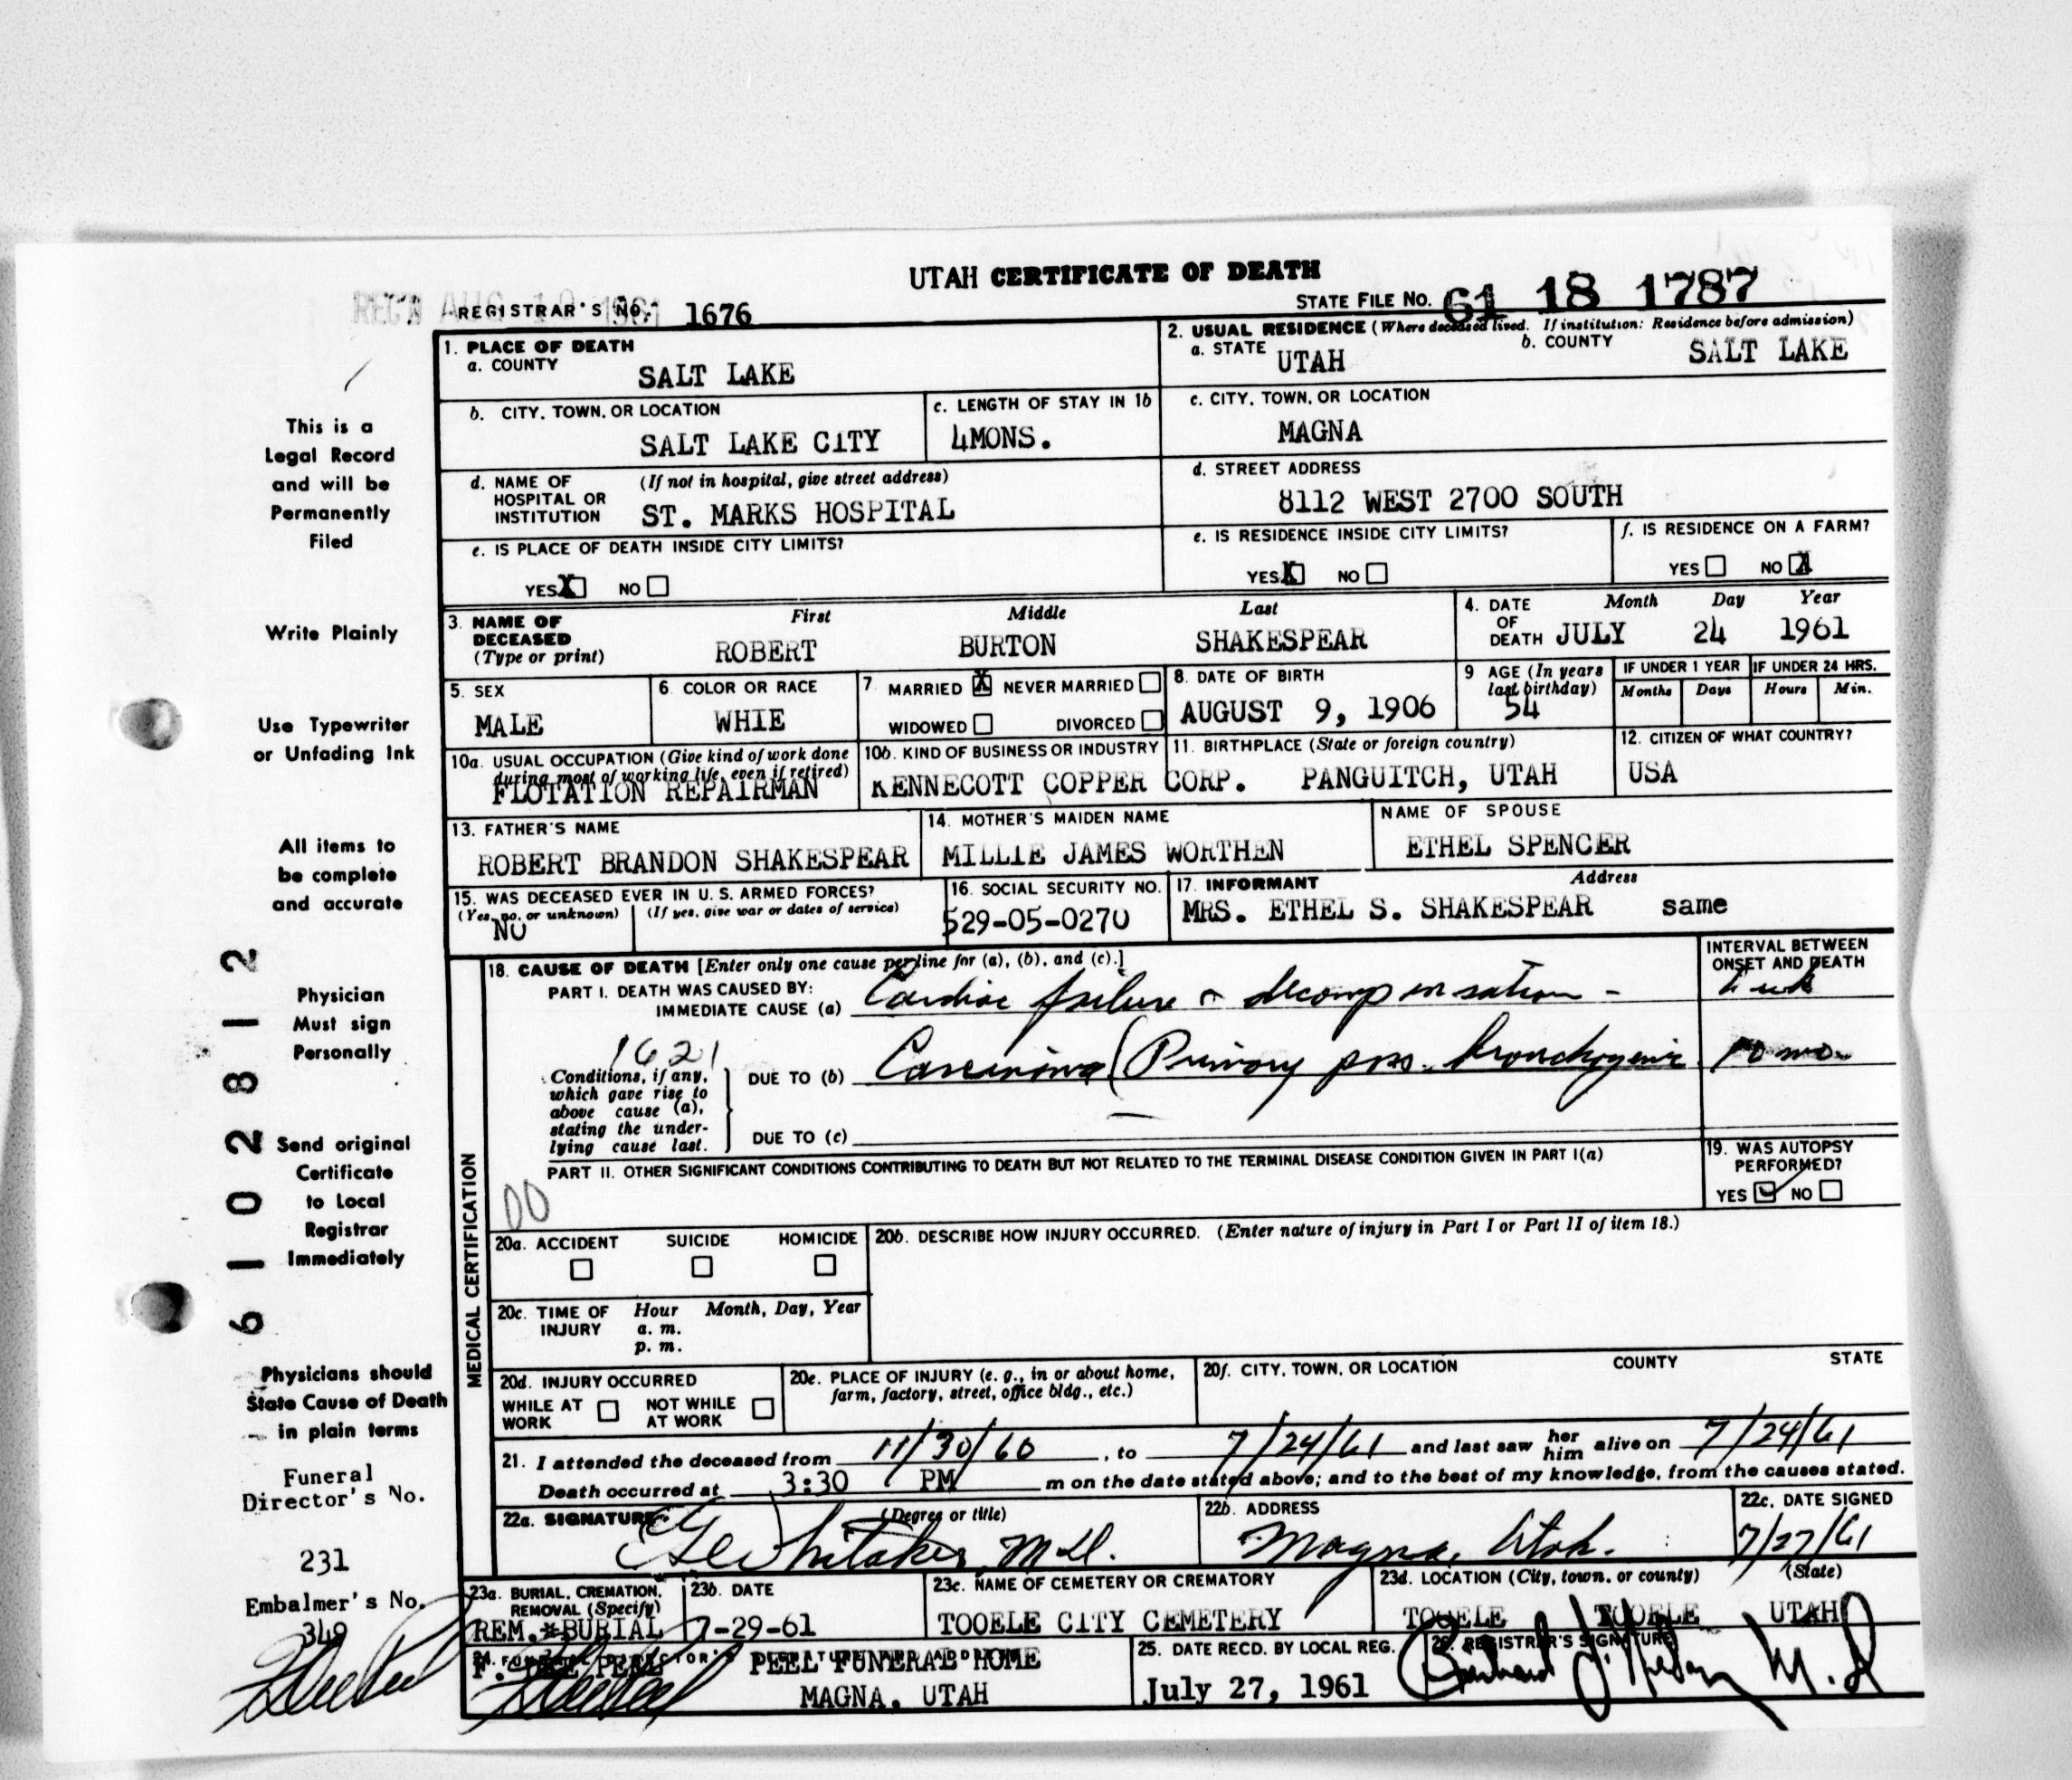 UTAH CERTIFICATE OF DEATH
REC'D AUG 10 1961
REGISTRAR'S NO. 1676
STATE FILE NO. 61 18 1787
1. PLACE OF DEATH
a. COUNTY
SALT LAKE
2. USUAL RESIDENCE (Where deceased lived. If institution: Residence before admission)
a. STATE UTAH b. COUNTY SALT LAKE
b. CITY, TOWN, OR LOCATION
SALT LAKE CITY
c. LENGTH OF STAY IN 1b
4MONS.
c. CITY, TOWN, OR LOCATION
MAGNA
d. NAME OF HOSPITAL OR INSTITUTION (If not in hospital, give street address)
ST. MARKS HOSPITAL
d. STREET ADDRESS
8112 WEST 2700 SOUTH
e. IS PLACE OF DEATH INSIDE CITY LIMITS?
YES X NO
e. IS RESIDENCE INSIDE CITY LIMITS?
YES X NO
f. IS RESIDENCE ON A FARM?
YES NO X
3. NAME OF DECEASED (Type or print)
First Middle Last
ROBERT BURTON SHAKESPEAR
4. DATE OF DEATH Month Day Year
JULY 24 1961
5. SEX
MALE
6. COLOR OR RACE
WHIE
7. MARRIED X NEVER MARRIED
WIDOWED DIVORCED
8. DATE OF BIRTH
AUGUST 9, 1906
9 AGE (In years last birthday)
54
IF UNDER 1 YEAR
Months Days
IF UNDER 24 HRS.
Hours Min.
10a. USUAL OCCUPATION (Give kind of work done during most of working life, even if retired)
FLOTATION REPAIRMAN
10b. KIND OF BUSINESS OR INDUSTRY
KENNECOTT COPPER CORP.
11. BIRTHPLACE (State or foreign country)
PANGUITCH, UTAH
12. CITIZEN OF WHAT COUNTRY?
USA
13. FATHER'S NAME
ROBERT BRANDON SHAKESPEAR
14. MOTHER'S MAIDEN NAME
MILLIE JAMES WORTHEN
NAME OF SPOUSE
ETHEL SPENCER
15. WAS DECEASED EVER IN U. S. ARMED FORCES?
(Yes, no, or unknown) (If yes, give war or dates of service)
NO
16. SOCIAL SECURITY NO.
529-05-0270
17. INFORMANT Address
MRS. ETHEL S. SHAKESPEAR same
MEDICAL CERTIFICATION
18. CAUSE OF DEATH [Enter only one cause per line for (a), (b), and (c).]
INTERVAL BETWEEN ONSET AND DEATH
PART I. DEATH WAS CAUSED BY:
IMMEDIATE CAUSE (a) Cardiac failure decompensation -
1621
Conditions, if any, which gave rise to above cause (a), stating the underlying cause last.
DUE TO (b) Carcinoma (Primary pos. bronchogenic 10 mo.
DUE TO (c)
PART II. OTHER SIGNIFICANT CONDITIONS CONTRIBUTING TO DEATH BUT NOT RELATED TO THE TERMINAL DISEASE CONDITION GIVEN IN PART I(a)
00
19. WAS AUTOPSY PERFORMED?
YES NO
20a. ACCIDENT SUICIDE HOMICIDE
20b. DESCRIBE HOW INJURY OCCURRED. (Enter nature of injury in Part I or Part II of item 18.)
20c. TIME OF INJURY Hour Month, Day, Year
a. m.
p. m.
20d. INJURY OCCURRED
WHILE AT WORK NOT WHILE AT WORK
20e. PLACE OF INJURY (e. g., in or about home, farm, factory, street, office bldg., etc.)
20f. CITY, TOWN, OR LOCATION COUNTY STATE
21. I attended the deceased from 11/30/60, to 7/24/61 and last saw her him alive on 7/24/61
Death occurred at 3:30 PM m on the date stated above; and to the best of my knowledge, from the causes stated.
22a. SIGNATURE (Degree or title)
Whitaker M.D.
22b. ADDRESS
Magna, Utah.
22c. DATE SIGNED
7/27/61
23a. BURIAL, CREMATION, REMOVAL (Specify)
REM.*BURIAL
23b. DATE
7-29-61
23c. NAME OF CEMETERY OR CREMATORY
TOOELE CITY CEMETERY
23d. LOCATION (City, town, or county) (State)
TOOELE TOOELE UTAH
PEEL FUNERAL HOME
MAGNA, UTAH
25. DATE RECD. BY LOCAL REG.
July 27, 1961
26. REGISTRAR'S SIGNATURE
M.D
This is a
Legal Record
and will be
Permanently
Filed
Write Plainly
Use Typewriter
or Unfading Ink
All items to
be complete
and accurate
Physician
Must sign
Personally
Send original
Certificate
to Local
Registrar
Immediately
Physicians should
State Cause of Death
in plain terms
Funeral
Director's No.
231
Embalmer's No.
349
6102812